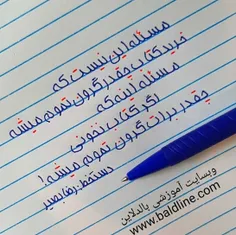 مسئله این نیست که
خرید کتاب چقدر گرون تموم میشه
مسئله اینه که
اگر کتاب نخونی
چقدر برات گرون تموم میشه!
دستخط: رضا بصیر
وبسایت آموزشی بالدلاین
www.baldline.com